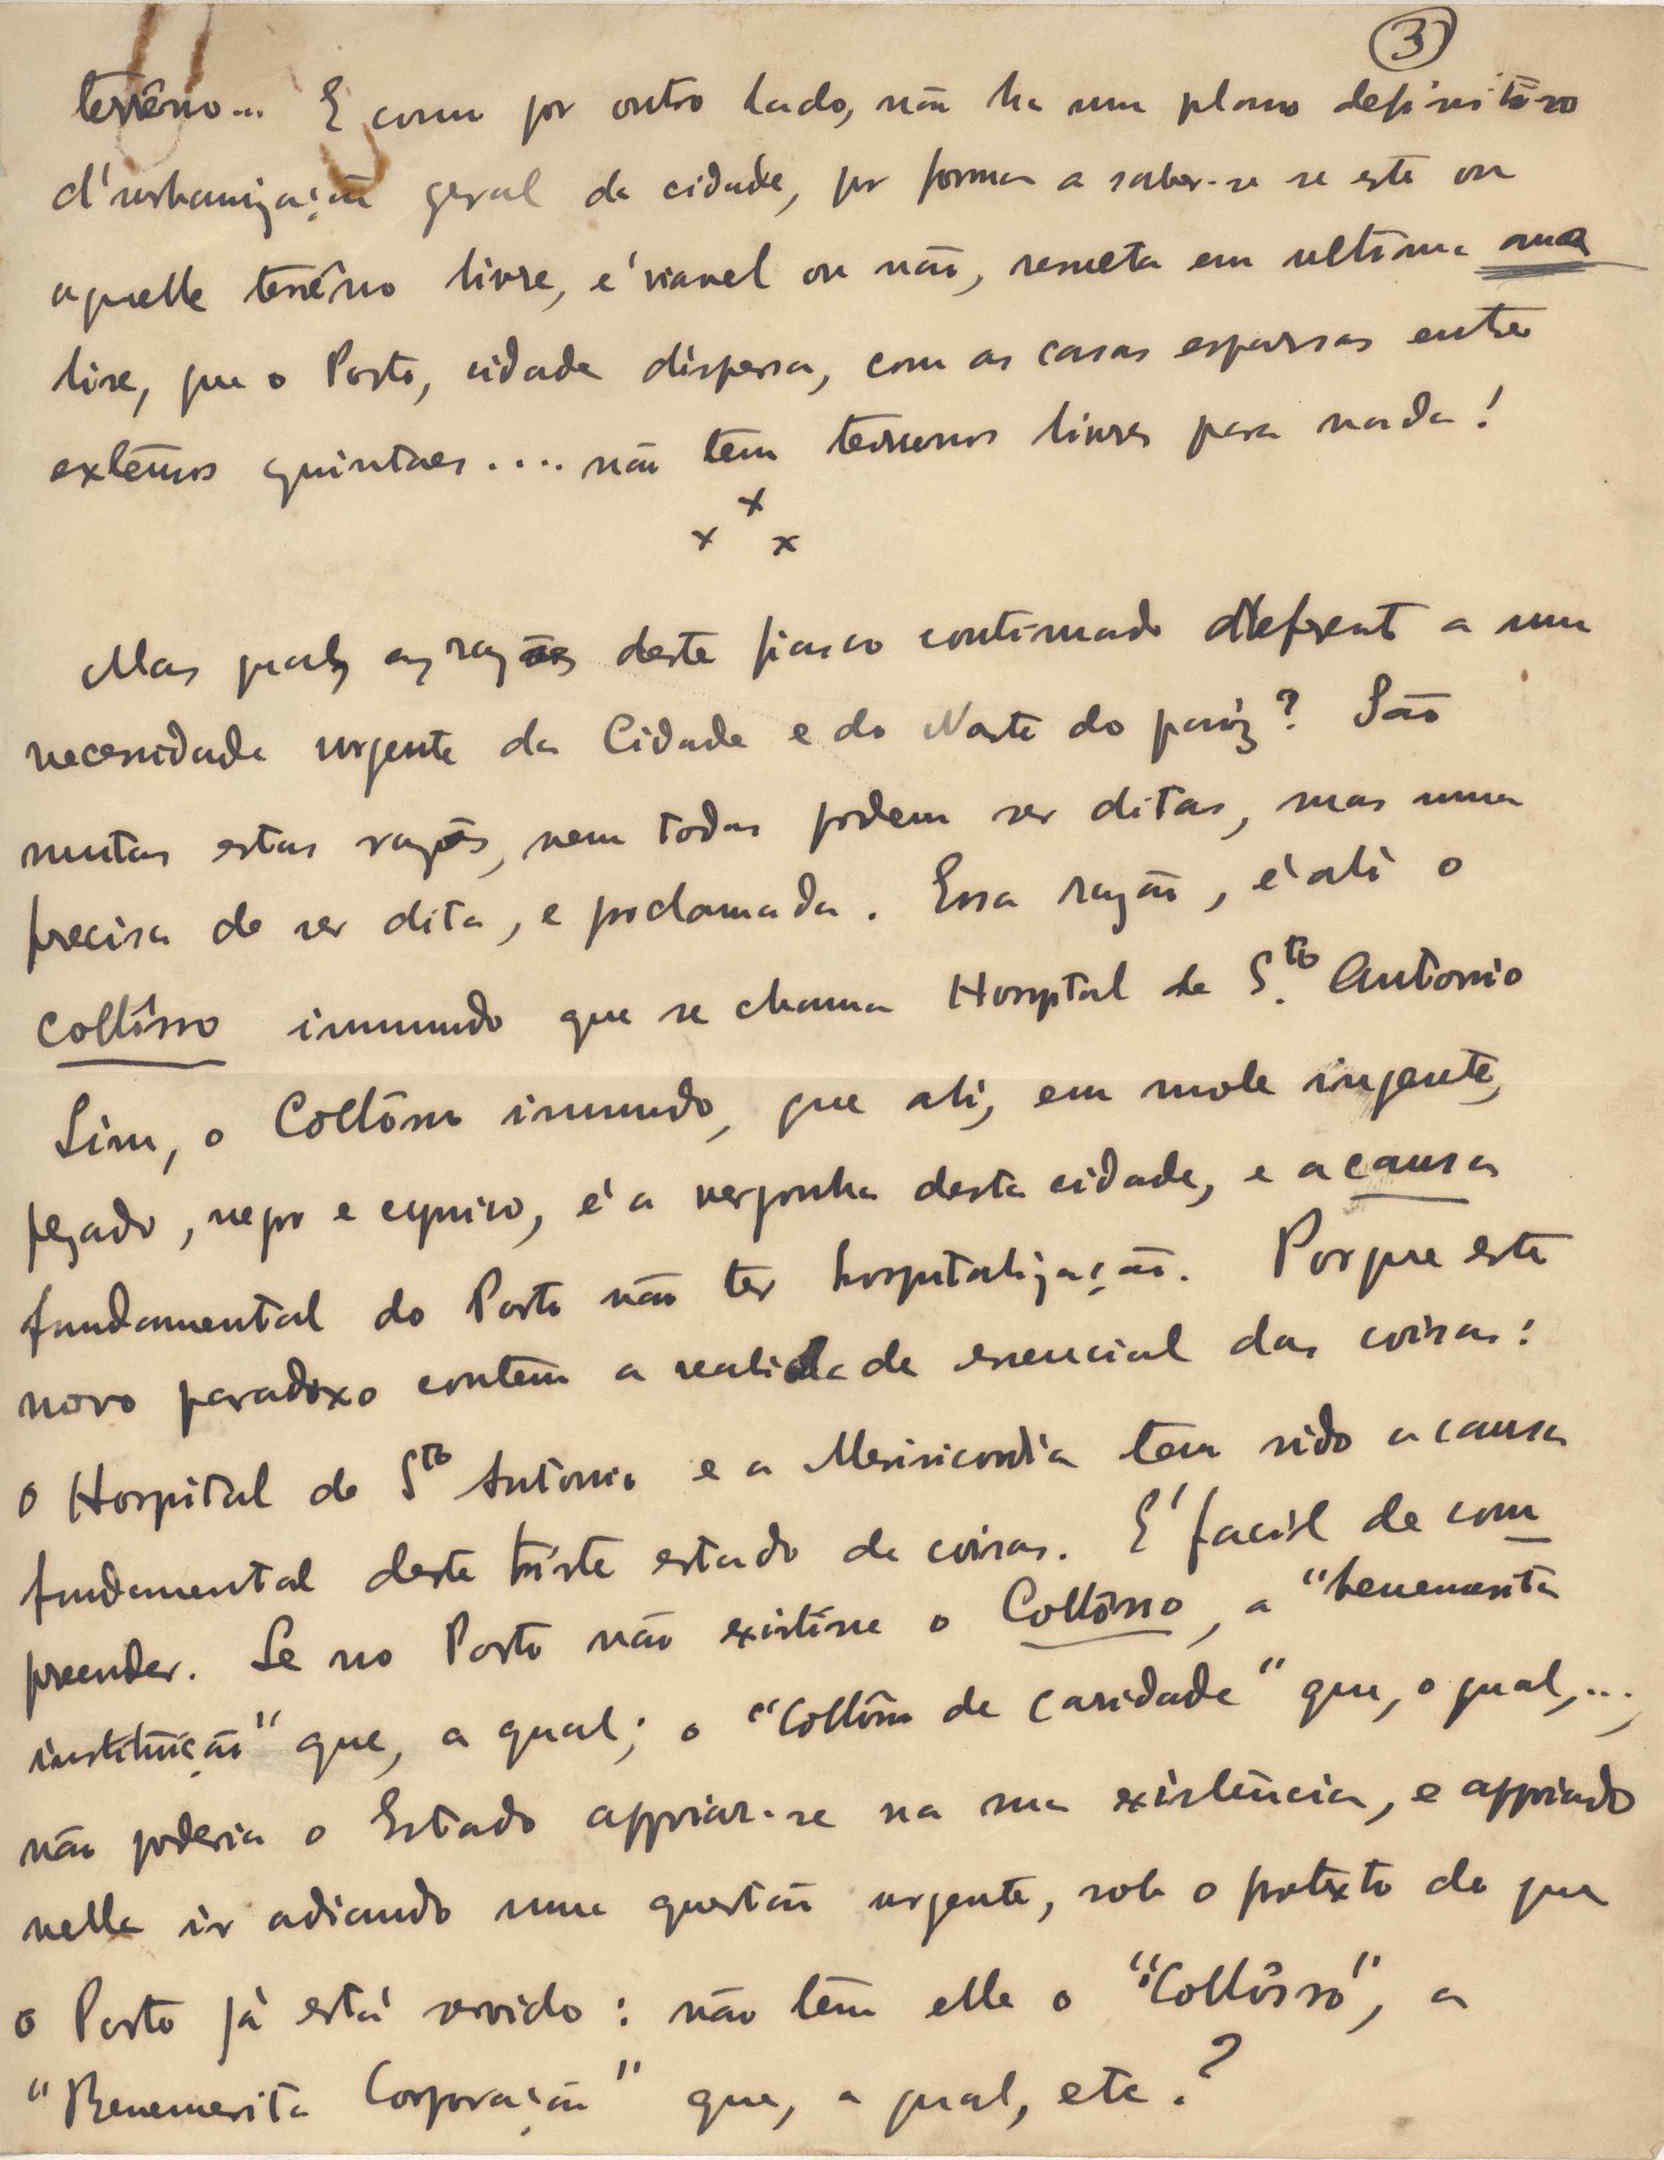 3
terrêno... E como por outro lado, não ha um plano definitivo
d'urbanização geral da cidade, por forma a saber-se se este ou
aquelle terrêno livre, é viavel ou não, resulta em ultima ana
lise, que o Porto, cidade dispersa, com as casas esparsas entre
extensos quintaes.... não tem terrenos livres para nada!
x x x
Mas quaes as razões deste fiasco continuado defrente a uma
necessidade urgente da Cidade e do Norte do paiz? São
muitas estas razões, nem todas podem ser ditas, mas uma
precisa de ser dita, e proclamada. Essa razão, é ali o
Collôsso immundo que se chama Hospital de S.to Antonio
Sim, o Collôsso immundo, que ali, em mole ingente,
pezado, negro e cynico, é a vergonha desta cidade, e a causa
fundamental do Porto não ter hospitalização. Porque este
novo paradoxo contem a realidade essencial das coisas:
O Hospital de Sto Antonio e a Mesiricordia tem sido a causa
fundamental deste triste estado de coisas. E' facil de com
preender. Se no Porto não existisse o Collôsso, a "benemerita
instituição" que, a qual; o "Collôsso de caridade" que, o qual,...,
não poderia o Estado appoiar-se na sua existência, e appoiado
nella ir adiando uma questão urgente, sob o pretexto de que
o Porto já está servido: não têm elle o "Collôsso", a
"Benemerita Corporação" que, a qual, etc.?